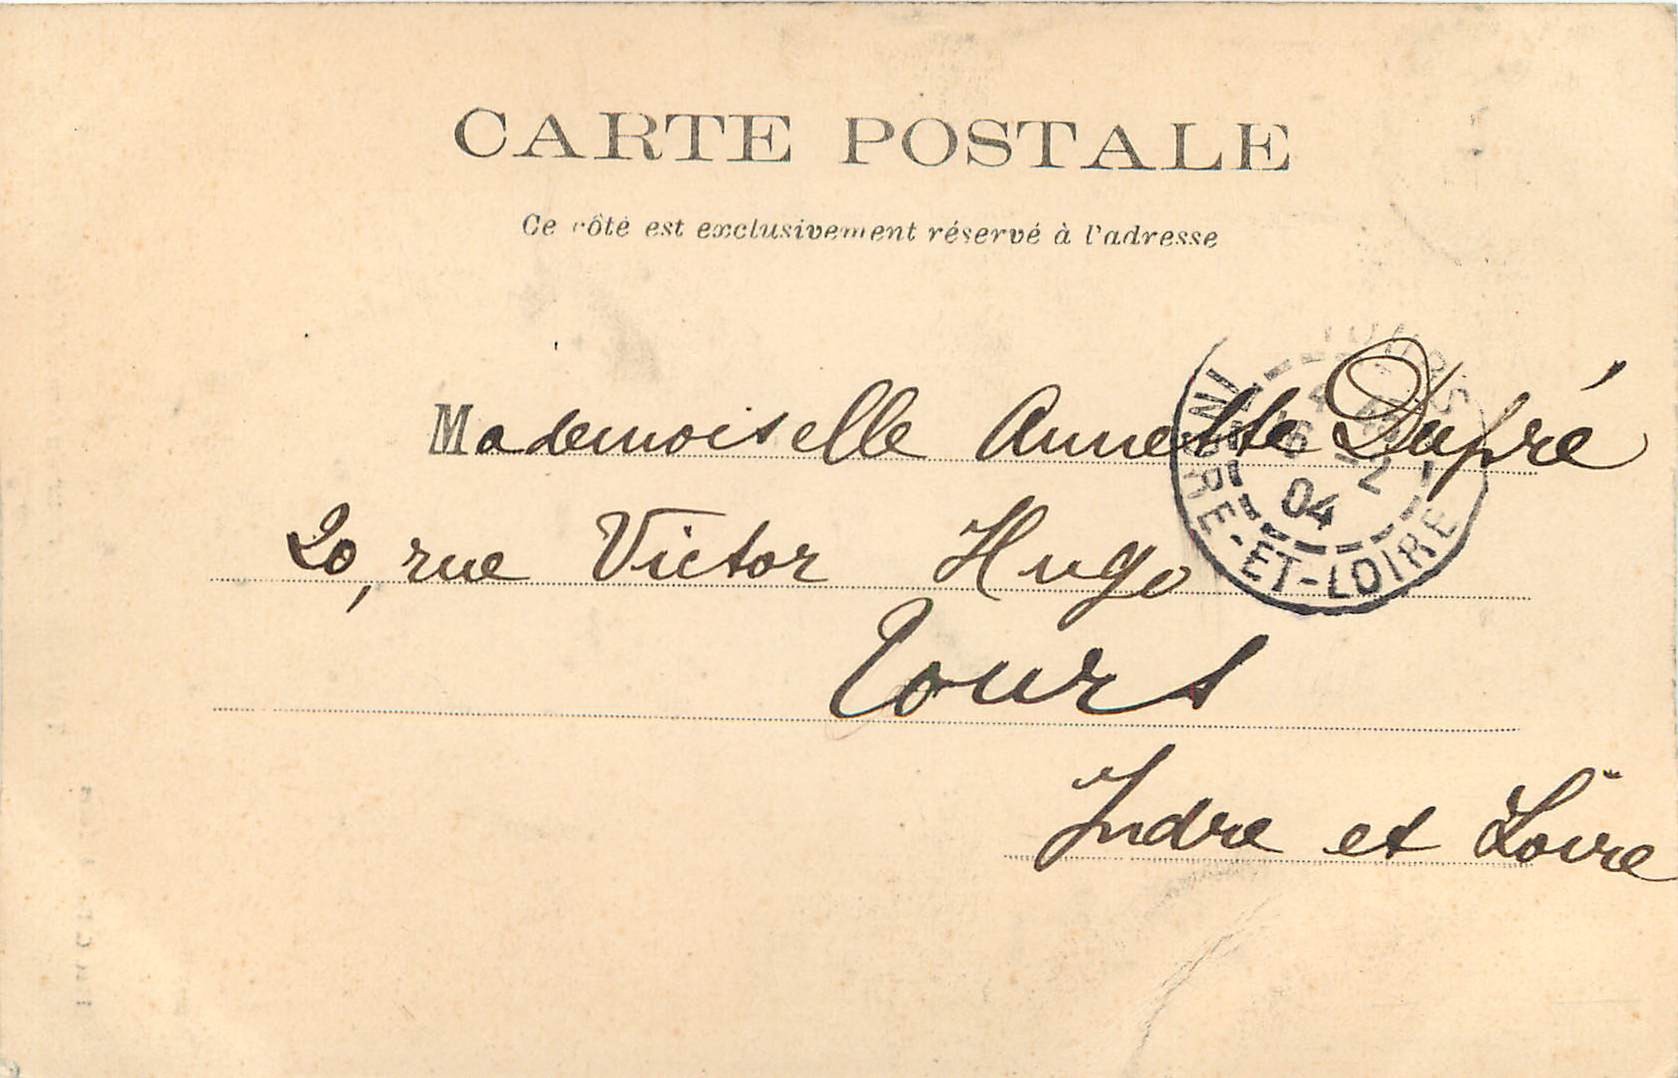 CARTE POSTALE
Ce côté est exclusivement réservé à l'adresse
Mademoiselle Annette Dupré
20, rue Victor Hugo
Tours
Indre et Loire
TOURS
12
04
INDRE-ET-LOIRE